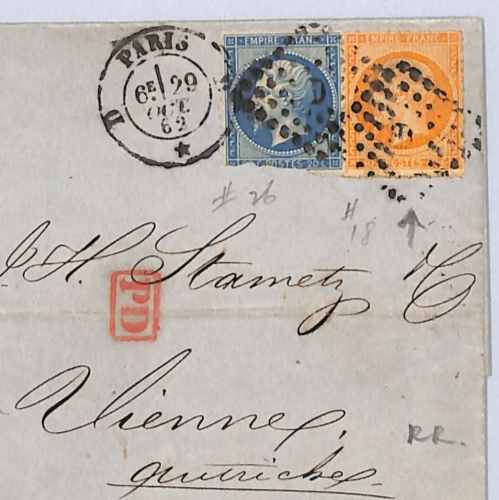 PARIS
6E 29
OCT.
62
D
EMPIRE FRANC
POSTES 20C
EMPIRE FRANC
POSTES
# 26
# 18
J. H. Stametz & C
PD
Vienne,
RR.
autriche